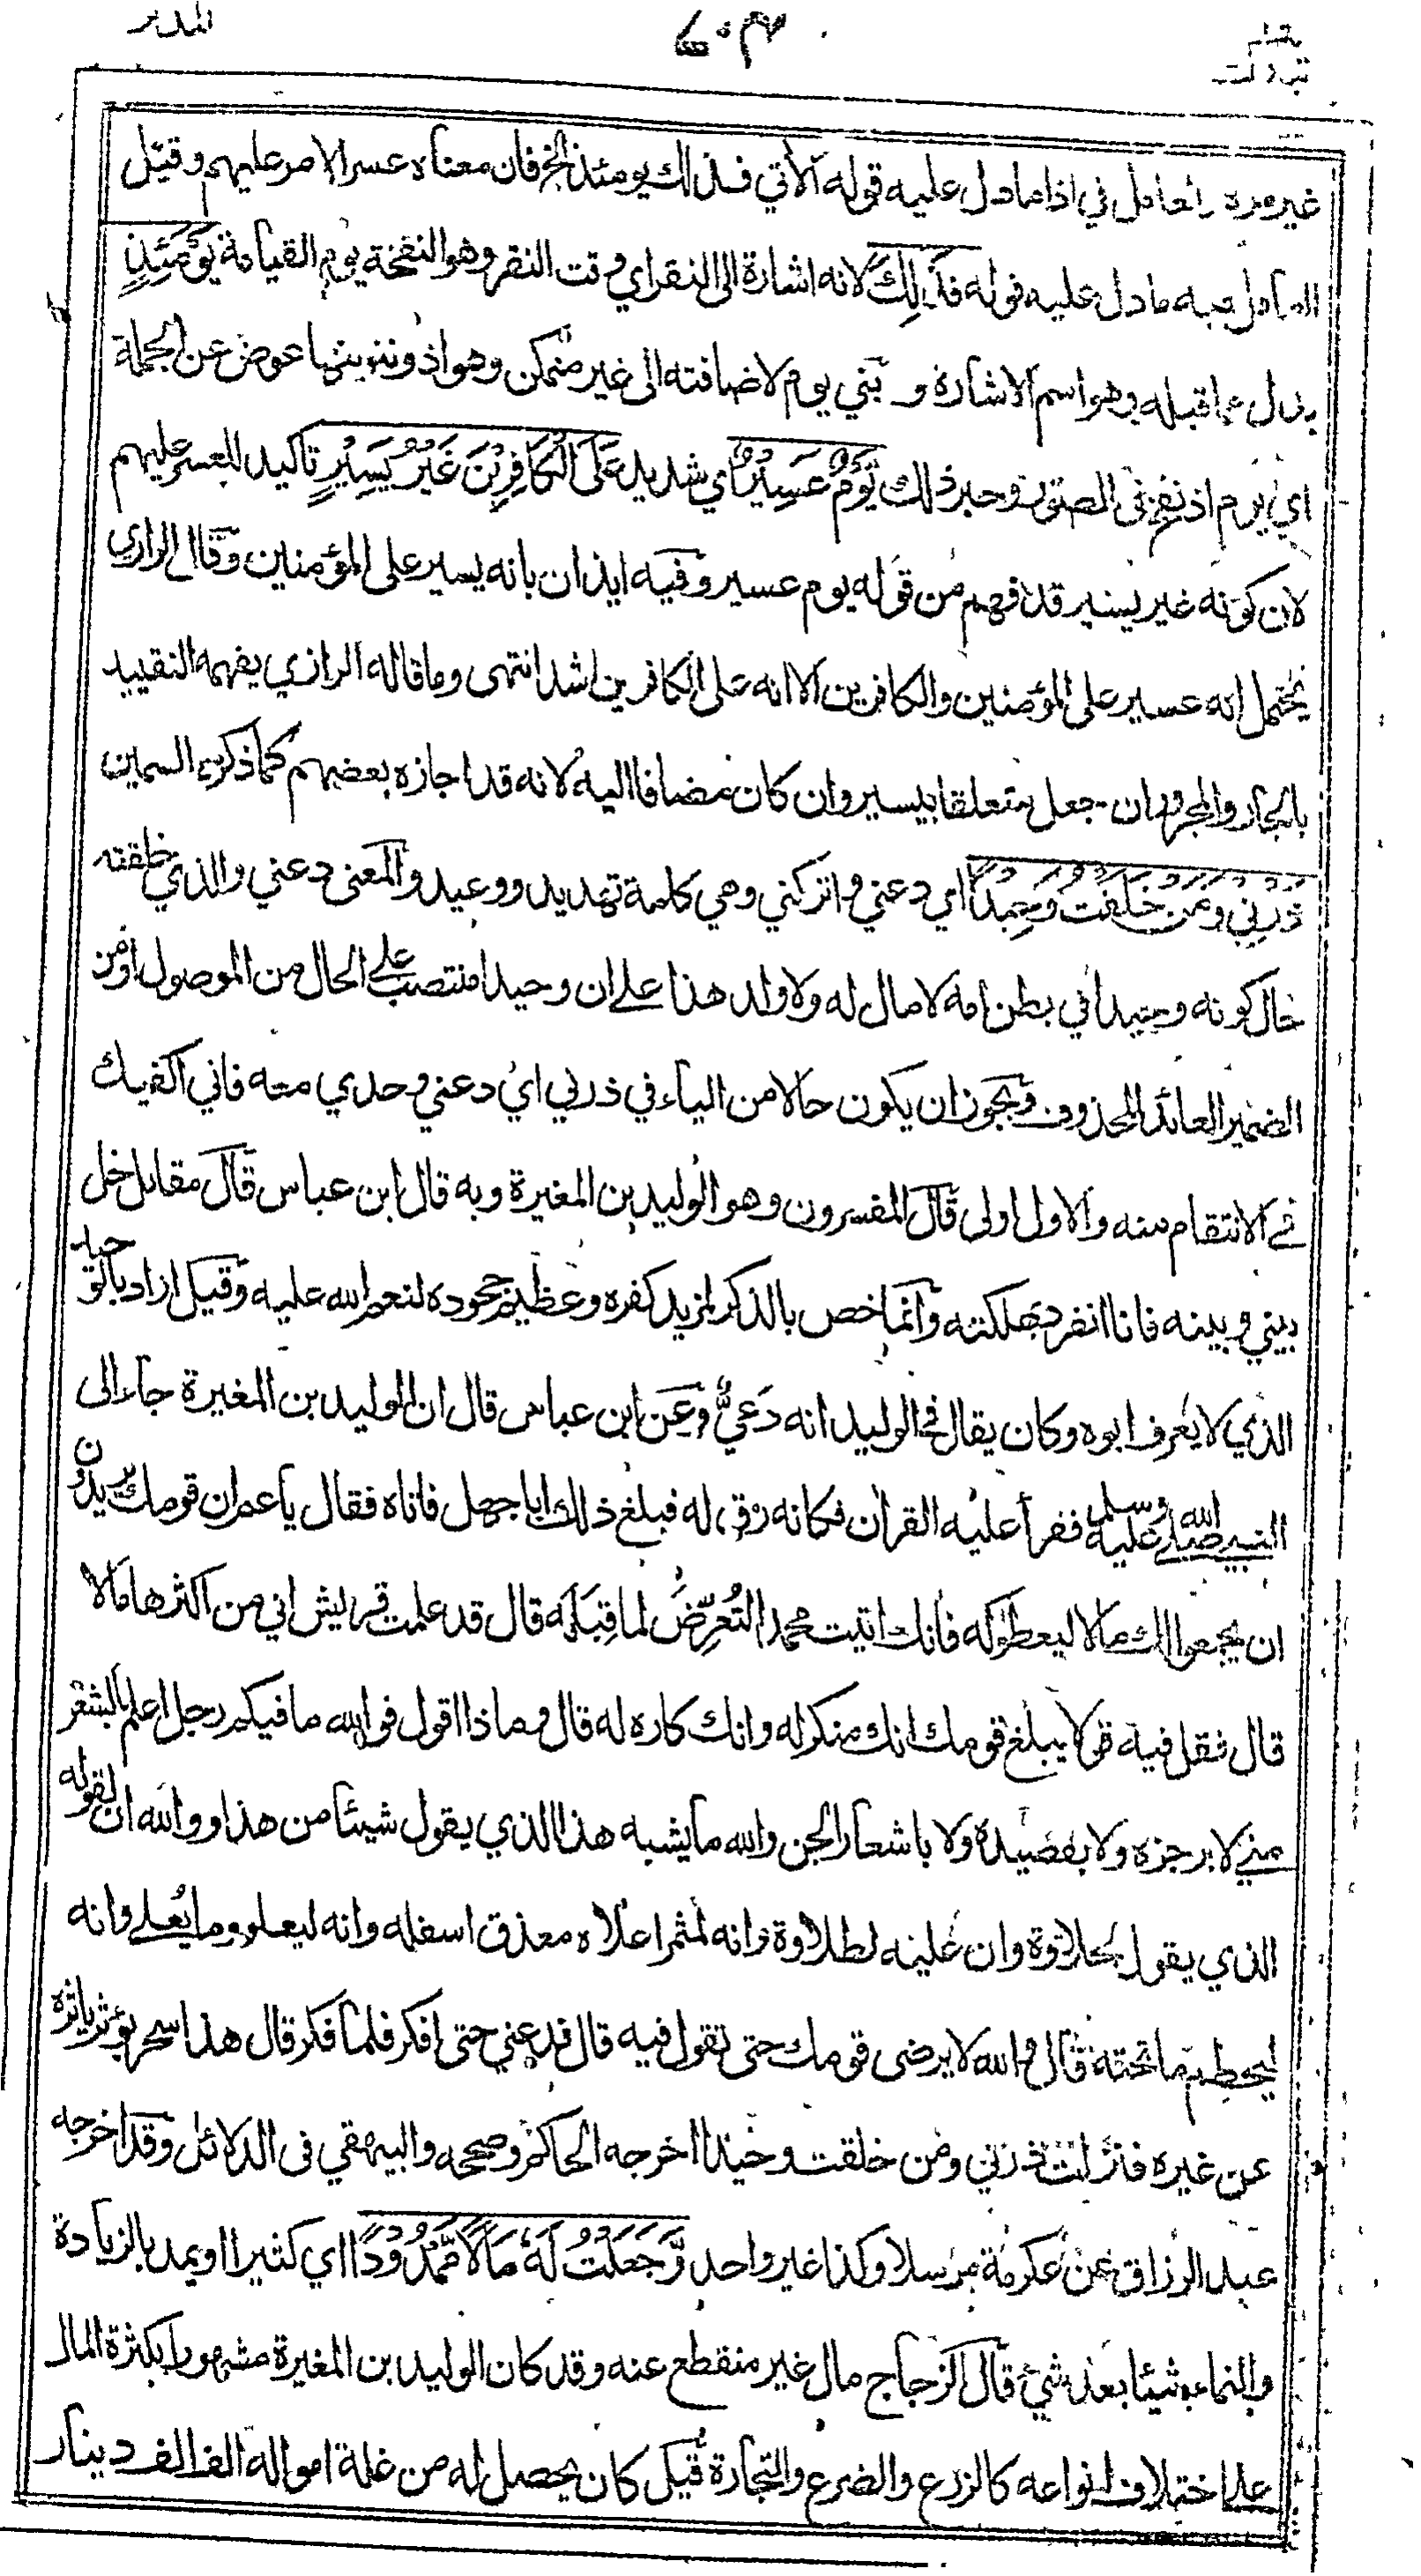 المدثر
غير مرة والعامل في اذا ما دل عليه قوله الآتي فذلك يومئذ الخ فان معناه عسر الامر عليهم وقيل
العامل فيه ما دل عليه قوله فَذَلِكَ لانه اشارة الى النقر اي وقت النقر وهو النفخة يوم القيامة يَوْمَئِذٍ
بدل مما قبله وهو اسم الاشارة و بني يوم لاضافته الى غير متمكن وهو اذ وتنوينها عوض عن الجملة
اي يوم اذ نفخ في الصور وخبر ذلك يَوْمٌ عَسِيْرٌ اي شديد عَلَى الْكَافِرِيْنَ غَيْرُ يَسِيْرٍ تاكيد للعسر عليهم
لان كونه غير يسير قد فهم من قوله يوم عسير وفيه ايذان بانه يسير على المؤمنين وقال الرازي
يحتمل انه عسير على المؤمنين والكافرين الا انه على الكافرين اشد انتهى وما قاله الرازي يفهمه التقييد
بالجار والمجرور ان جعل متعلقا بيسير وان كان مضافا اليه لانه قد اجازه بعضهم كما ذكره السمين
ذَرْنِي وَمَنْ خَلَقْتُ وَحِيْدًا اي دعني واتركني وهي كلمة تهديد ووعيد والمعنى دعني والذي خلقته
حال كونه وحيدا في بطن امه لا مال له ولا ولد هذا على ان وحيدا منتصب على الحال من الموصول او من
الضمير العائد المحذوف ويجوز ان يكون حالا من الياء في ذرني اي دعني وحدي معه فاني اكفيك
في الانتقام منه والاول اولى قال المفسرون وهو الوليد بن المغيرة وبه قال ابن عباس قال مقاتل خل
بيني وبينه فانا انفرد بهلكته وانما خص بالذكر لمزيد كفره وعظيم جحوده لنعم الله عليه وقيل اراد بالوحيد
الذي لا يعرف ابوه وكان يقال في الوليد انه دَعِيٌّ وعن ابن عباس قال ان الوليد بن المغيرة جاء الى
النبي صلى الله عليه وسلم فقرأ عليه القرآن فكانه رق له فبلغ ذلك ابا جهل فاتاه فقال يا عم ان قومك يريدون
ان يجمعوا لك مالا ليعطوكه فانك اتيت محمدا لتُعَرِّضَ لما قِبَلَه قال قد علمت قريش اني من اكثرها مالا
قال فقل فيه قولا يبلغ قومك انك منكر له وانك كاره له قال وماذا اقول فوالله ما فيكم رجل اعلم بالشعر
مني لا برجزه ولا بقصيده ولا باشعار الجن والله ما يشبه هذا الذي يقول شيئا من هذا ووالله ان لقوله
الذي يقول لحلاوة وان عليه لطلاوة وانه لمثمر اعلاه معذق اسفله وانه ليعلو وما يُعلى وانه
ليحطم ما تحته قال والله لا يرضى قومك حتى تقول فيه قال فدعني حتى افكر فلما فكر قال هذا سحر يؤثر ياثره
عن غيره فنزلت ذرني ومن خلقت وحيدا اخرجه الحاكم وصححه والبيهقي في الدلائل وقد اخرجه
عبد الرزاق عن عكرمة مرسلا وكذا غير واحد وَّجَعَلْتُ لَهُ مَالًا مَّمْدُوْدًا اي كثيرا او يمد بالزيادة
والنماء شيئا بعد شئ قال الزجاج مال غير منقطع عنه وقد كان الوليد بن المغيرة مشهورا بكثرة المال
على اختلاف انواعه كالزرع والضرع والتجارة قيل كان يحصل له من غلة امواله الف الف دينار